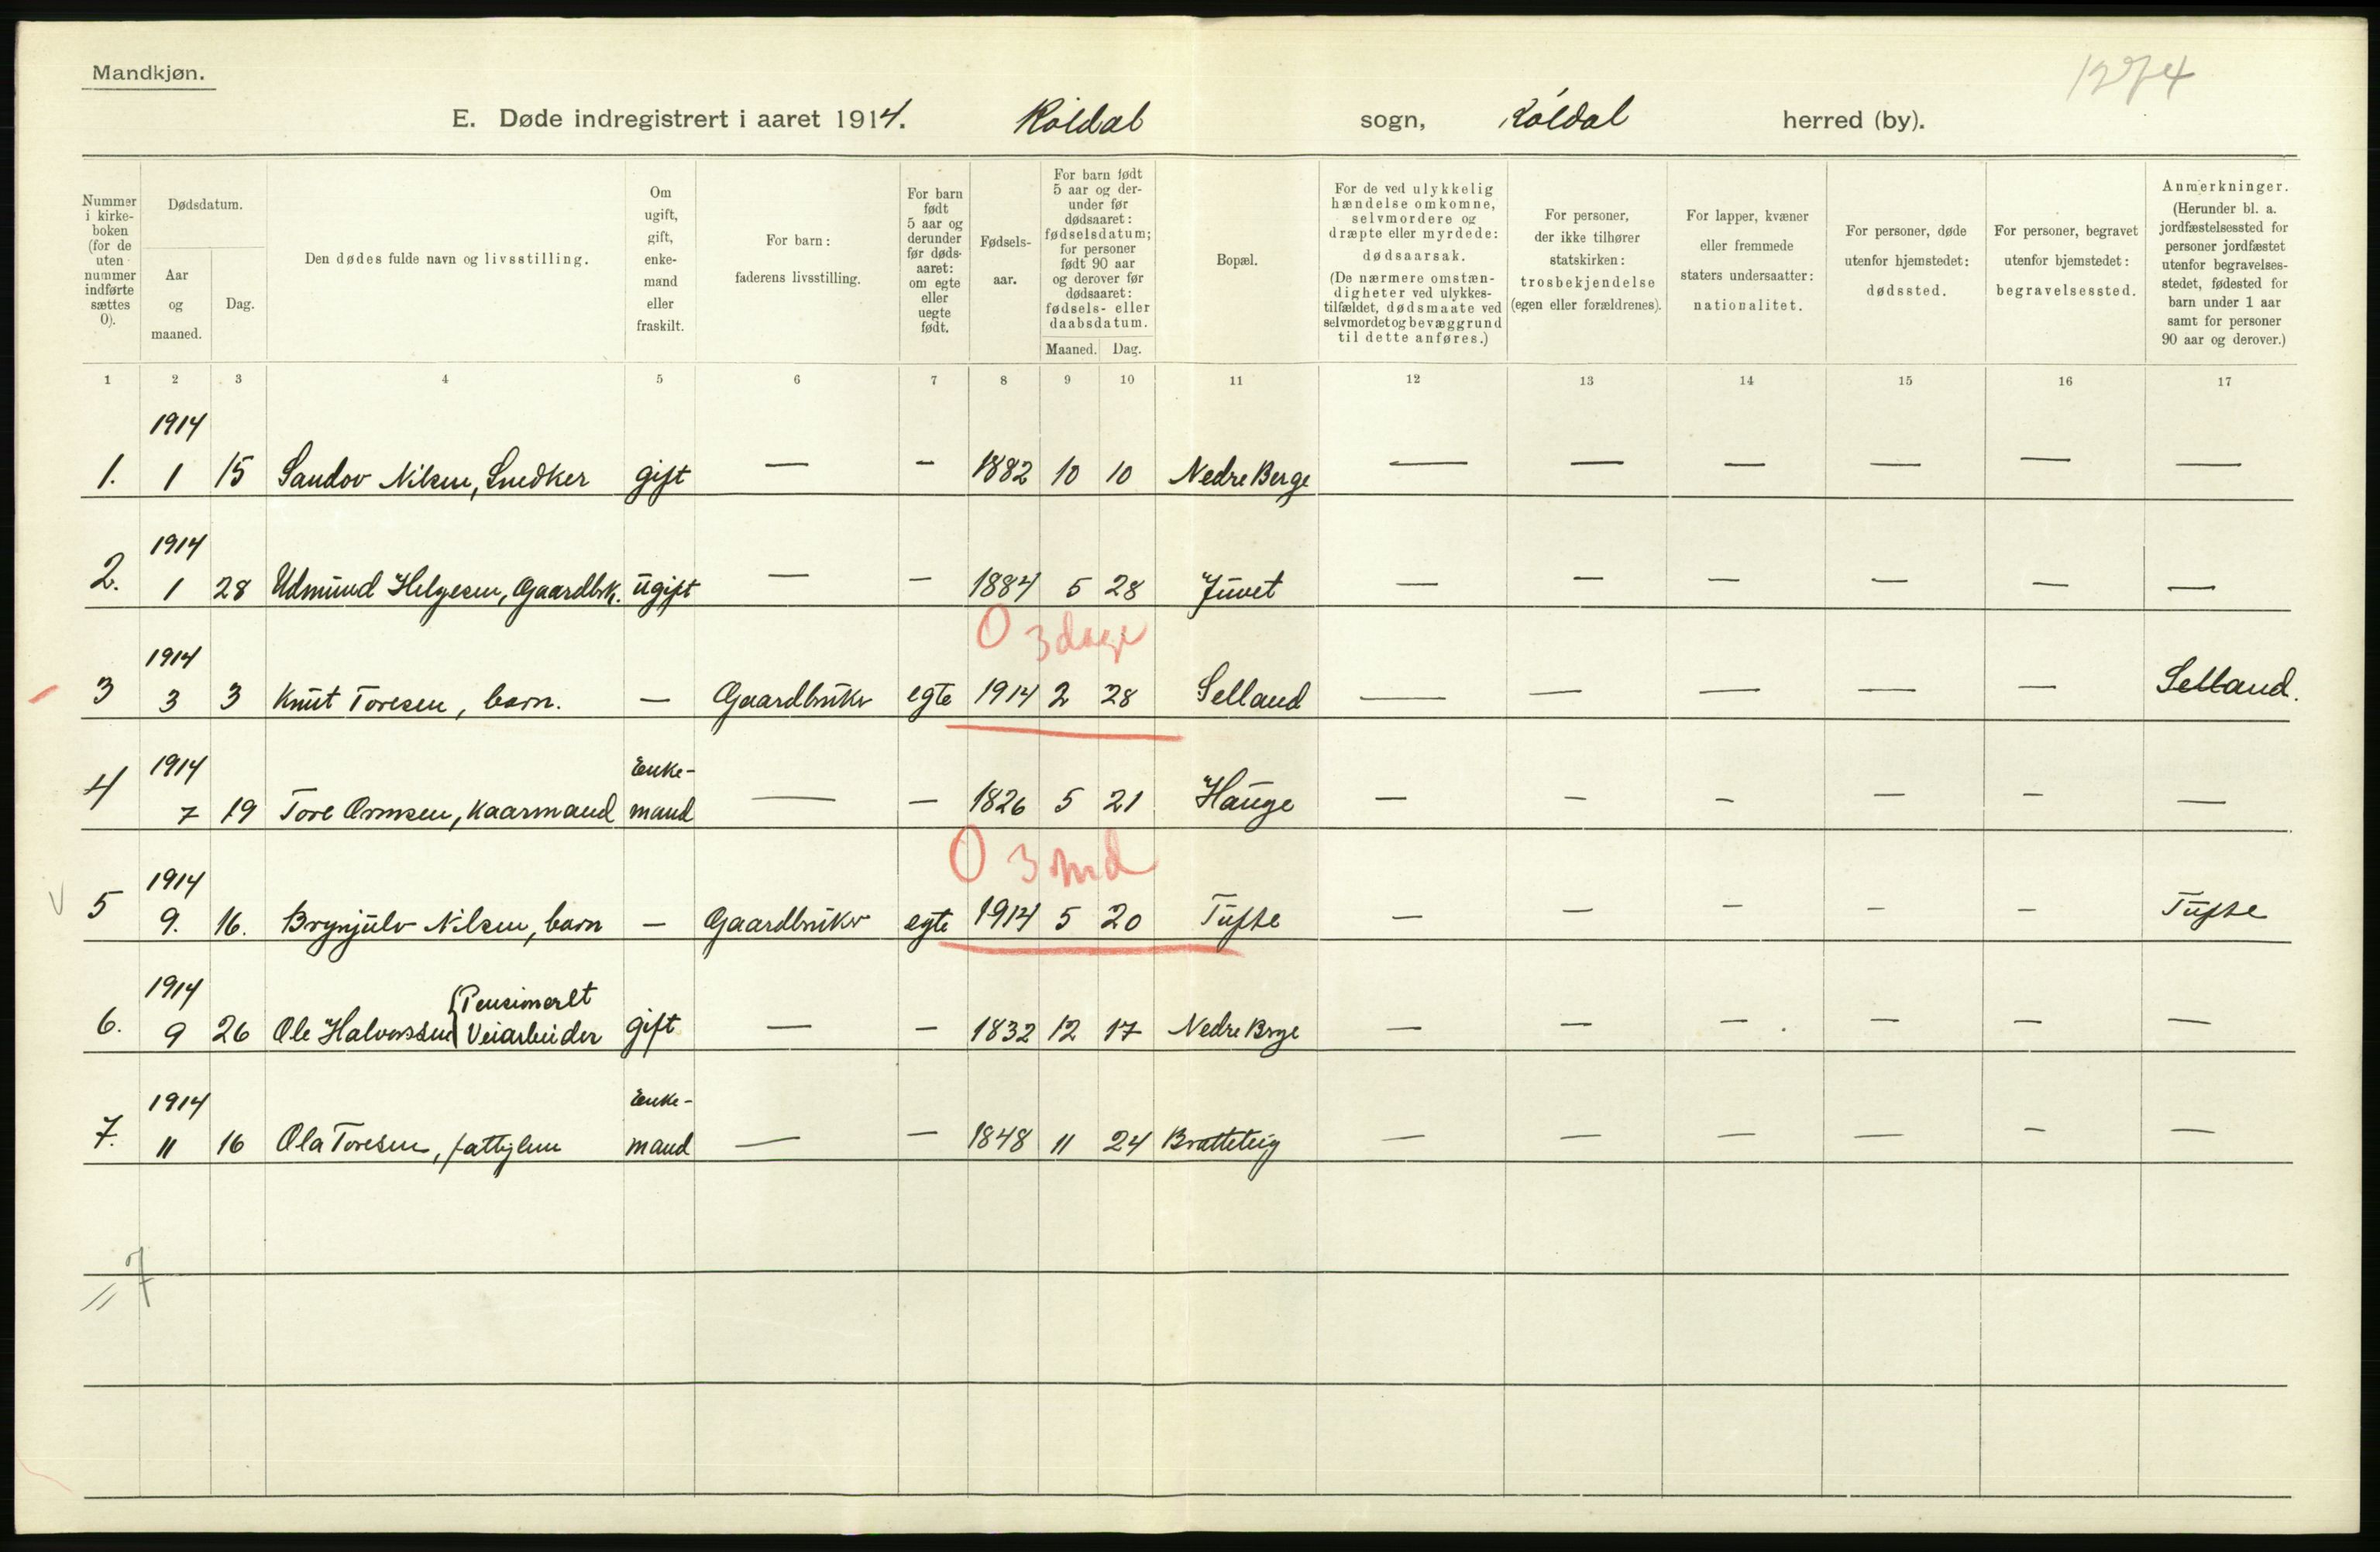 Mandkjøn.
1274
E. Døde indregistrert i aaret 1914. Röldal sogn, Röldal herred (by).
Nummer i kirke-boken (for de uten nummer indførte sættes 0).
Dødsdatum.
Aar og maaned.
Dag.
Den dødes fulde navn og livsstilling.
Om ugift, gift, enke-mand eller fraskilt.
For barn: faderens livsstilling.
For barn født 5 aar og derunder før døds-aaret: om egte eller uegte født.
Fødsels-aar.
For barn født 5 aar og der-under før dødsaaret: fødselsdatum; for personer født 90 aar og derover før dødsaaret: fødsels- eller daabsdatum.
Maaned. Dag.
Bopæl.
For de ved ulykkelig hændelse omkomne, selvmordere og dræpte eller myrdede: dødsaarsak. (De nærmere omstæn-digheter ved ulykkes-tilfældet, dødsmaate ved selvmordet og bevæggrund til dette anføres.)
For personer, der ikke tilhører statskirken: trosbekjendelse (egen eller forældrenes).
For lapper, kvæner eller fremmede staters undersaatter: nationalitet.
For personer, døde utenfor hjemstedet: dødssted.
For personer, begravet utenfor hjemstedet: begravelsessted.
Anmerkninger. (Herunder bl. a. jordfæstelsessted for personer jordfæstet utenfor begravelses-stedet, fødested for barn under 1 aar samt for personer 90 aar og derover.)
1 2 3 4 5 6 7 8 9 10 11 12 13 14 15 16 17
1914
1. 1 15 Sandov Nilsen, Snedker gift — — 1882 10 10 Nedre Berge — — — — — —
1914
2. 1 28 Udmund Helgesen, Gaardbrk. ugift — — 1884 5 28 Juvet — — — — — —
0 3 dage
1914
3 3 3 Knut Toresen, barn. — Gaardbruker egte 1914 2 28 Selland — — — — — Selland.
1914 Enke-
4 7 19 Tore Ormsen, Kaarmand mand — — 1826 5 21 Hauge — — — — — —
0 3 md
1914
5 9. 16. Brynjulv Nilsen, barn — Gaardbruker egte 1914 5 20 Tufte — — — — — Tufte
1914 Pensionert
6. 9 26 Ole Halvorssen Veiarbeider gift — — 1832 12 17 Nedre Brge — — — — — —
1914 Enke-
7. 11 16 Ola Toresen, fattiglem mand — — 1848 11 24 Bratteteig — — — — — —
7